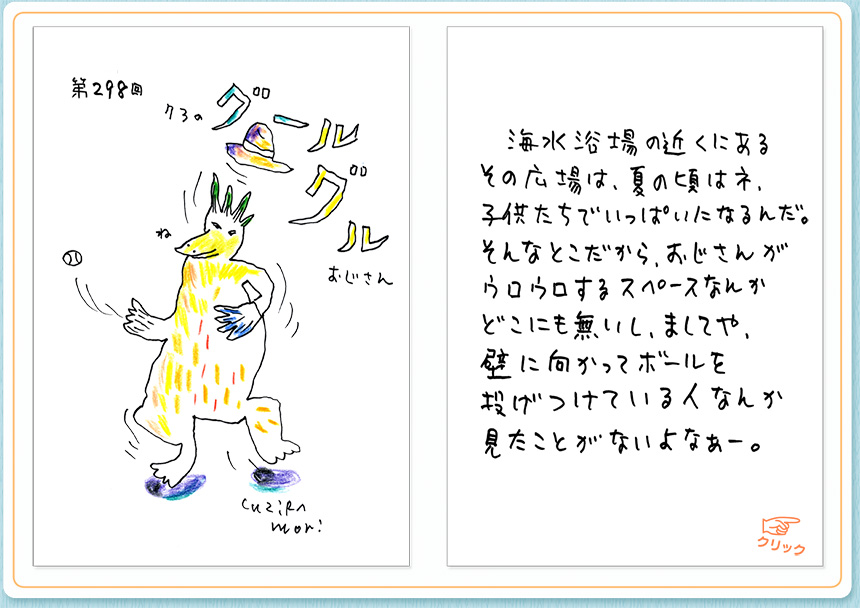 第298回
クスの
グールグル
ね
おじさん
cuziRA
mori
海水浴場の近くにある
その広場は、夏の頃はネ、
子供たちでいっぱいになるんだ。
そんなとこだから、おじさんが
ウロウロするスペースなんか
どこにも無いし、ましてや、
壁に向かってボールを
投げつけている人なんか
見たことがないよなぁー。
クリック